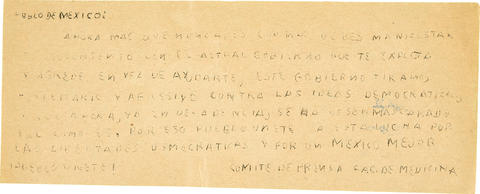 PUEBLO DE MEXICO:
AHORA MAS QUE NUNCA DEBES MANIFESTAR
DESCONTENTO CON EL ACTUAL GOBIERNO QUE TE EXPLOTA
Y AGREDE EN VEZ DE AYUDARTE, ESTE GOBIERNO TIRANO,
Y AGRESIVO CONTRA LAS IDEAS DEMOCRATICAS,
AHORA, YA EN DECADENCIA, SE HA DESENMASCARADO
POR ESO PUEBLO UNETE A ESTA LUCHA POR
LAS LIBERTADES DEMOCRATICAS Y POR UN MEXICO MEJOR
¡PUEBLO UNETE! COMITE DE PRENSA FAC. DE MEDICINA